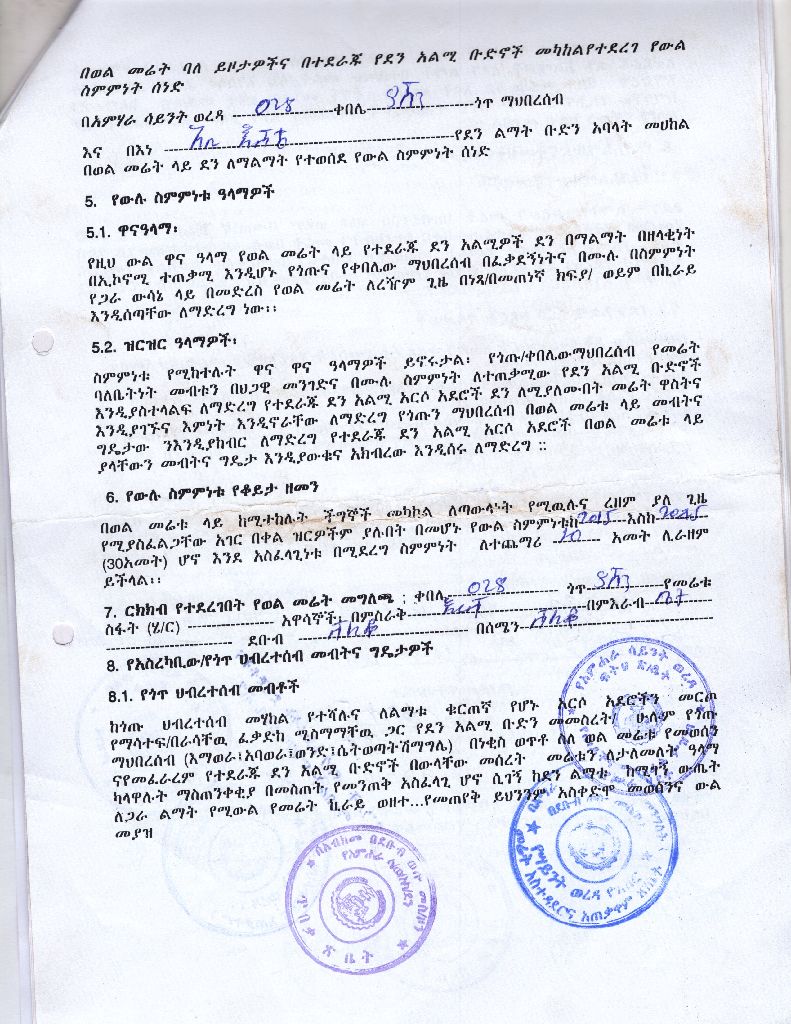 በወል መሬት ባለ ይዞታዎችና በተደራጁ የደን አልሚ ቡድኖች መካከልየተደረገ የውል
ስምምነት ሰነድ
በአምሃራ ሳይንት ወረዳ 028 ቀበሌ ጎጥ ማህበረሰብ
እና በእነ የደን ልማት ቡድን አባላት መሀከል
በወል መሬት ላይ ደን ለማልማት የተወሰደ የውል ስምምነት ሰነድ
5. የውሉ ስምምነቱ ዓላማዎች
5.1. ዋናዓላማ፡
የዚህ ውል ዋና ዓላማ የወል መሬት ላይ የተደራጁ ደን አልሚዎች ደን በማልማት በዘላቂነት
በኢኮኖሚ ተጠቃሚ እንዲሆኑ የጎጡና የቀበሌው ማህበረሰብ በፈቃደኝነትና በሙሉ በስምምነት
የጋራ ውሳኔ ላይ በመድረስ የወል መሬት ለረዥም ጊዜ በነጻ/በመጠነኝ ክፍያ/ ወይም በኪራይ
እንዲሰጣቸው ለማድረግ ነው፡፡
5.2. ዝርዝር ዓላማዎች፡
ስምምነቱ የሚከተሉት ዋና ዋና ዓላማዎች ይኖሩታል፡ የጎጡ/ቀበሌውማህበረሰብ የመሬት
ባለቤትነት መብቱን በህጋዊ መንገድና በሙሉ ስምምነት ለተጠቃሚው የደን አልሚ ቡድኖች
እንዲያስተላልፍ ለማድረግ የተደራጁ ደን አልሚ አርሶ አደሮች ደን ለሚያለሙበት መሬት ዋስትና
እንዲያገኙና እምነት እንዲኖራቸው ለማድረግ የጎጡን ማህበረሰብ በወል መሬቱ ላይ መብትና
ግዴታው ንእንዲያከብር ለማድረግ የተደራጁ ደን አልሚ አርሶ አደሮች በወል መሬቱ ላይ
ያላቸውን መብትና ግዴታ እንዲያውቁና አክብረው እንዲሰሩ ለማድረግ ::
6. የውሉ ስምምነቱ የቆይታ ዘመን
በወል መሬቱ ላይ ከሚተከሉት ችግኞች መካከል ለጣውላነት የሚዉሉና ረዘም ያለ ጊዜ
የሚያስፈልጋቸው አገር በቀል ዝርዎችም ያሉበት በመሆኑ የውል ስምምነቱከ 2015 እስከ 2045
(30አመት) ሆኖ እንደ አስፈላጊነቱ በሚደረግ ስምምነት ለተጨማሪ 20 አመት ሊራዘም
ይችላል፡፡
7. ርክክብ የተደረገበት የወል መሬት መግለጫ ; ቀበሌ 028 ጎጥ የመሬቱ
ስፋት (ሄ/ር) አዋሳኞች, በምስራቅ በምእራብ
ደቡብ በሰሜን
8. የአስረካቢው/የጎጥ ህብረተሰብ መብትና ግዴታዎች
8.1. የጎጥ ህብረተሰብ መብቶች
ከጎጡ ህብረተሰብ መሃከል የተሻሉና ለልማቱ ቁርጠኛ የሆኑ አርሶ አደሮችን መርጦ
የማሳተፍ/በራሳቸዉ ፈቃድከ ሚስማማቸዉ ጋር የደን አልሚ ቡድን መመስረት/ ሁሉም የጎጡ
ማህበረሰብ (እማወራ፤አባወራ፤ወንድ፤ሴትወጣትሽማግሌ) በነቂስ ወጥቶ ስለ ወል መሬቱ የመወሰን
ናየመፈራረም የተደራጁ ደን አልሚ ቡድኖች በውላቸው መሰረት መሬቱን ለታለመለት ዓላማ
ካላዋሉት ማስጠንቀቂያ በመስጠት የመንጠቅ አስፈላጊ ሆኖ ሲገኝ ከደን ልማቱ ከሚገኝ ውጤት
ለጋራ ልማት የሚውል የመሬት ኪራይ ወዘተ...የመጠየቅ ይህንንም አስቀድሞ መወሰንና ውል
መያዝ
የአምሐራ ሳይንት ወረዳ
ፍትህ ጽ/ቤት
መሬት አስተዳደርና አጠቃቀም ጽ/ቤት
ጽ ቤት